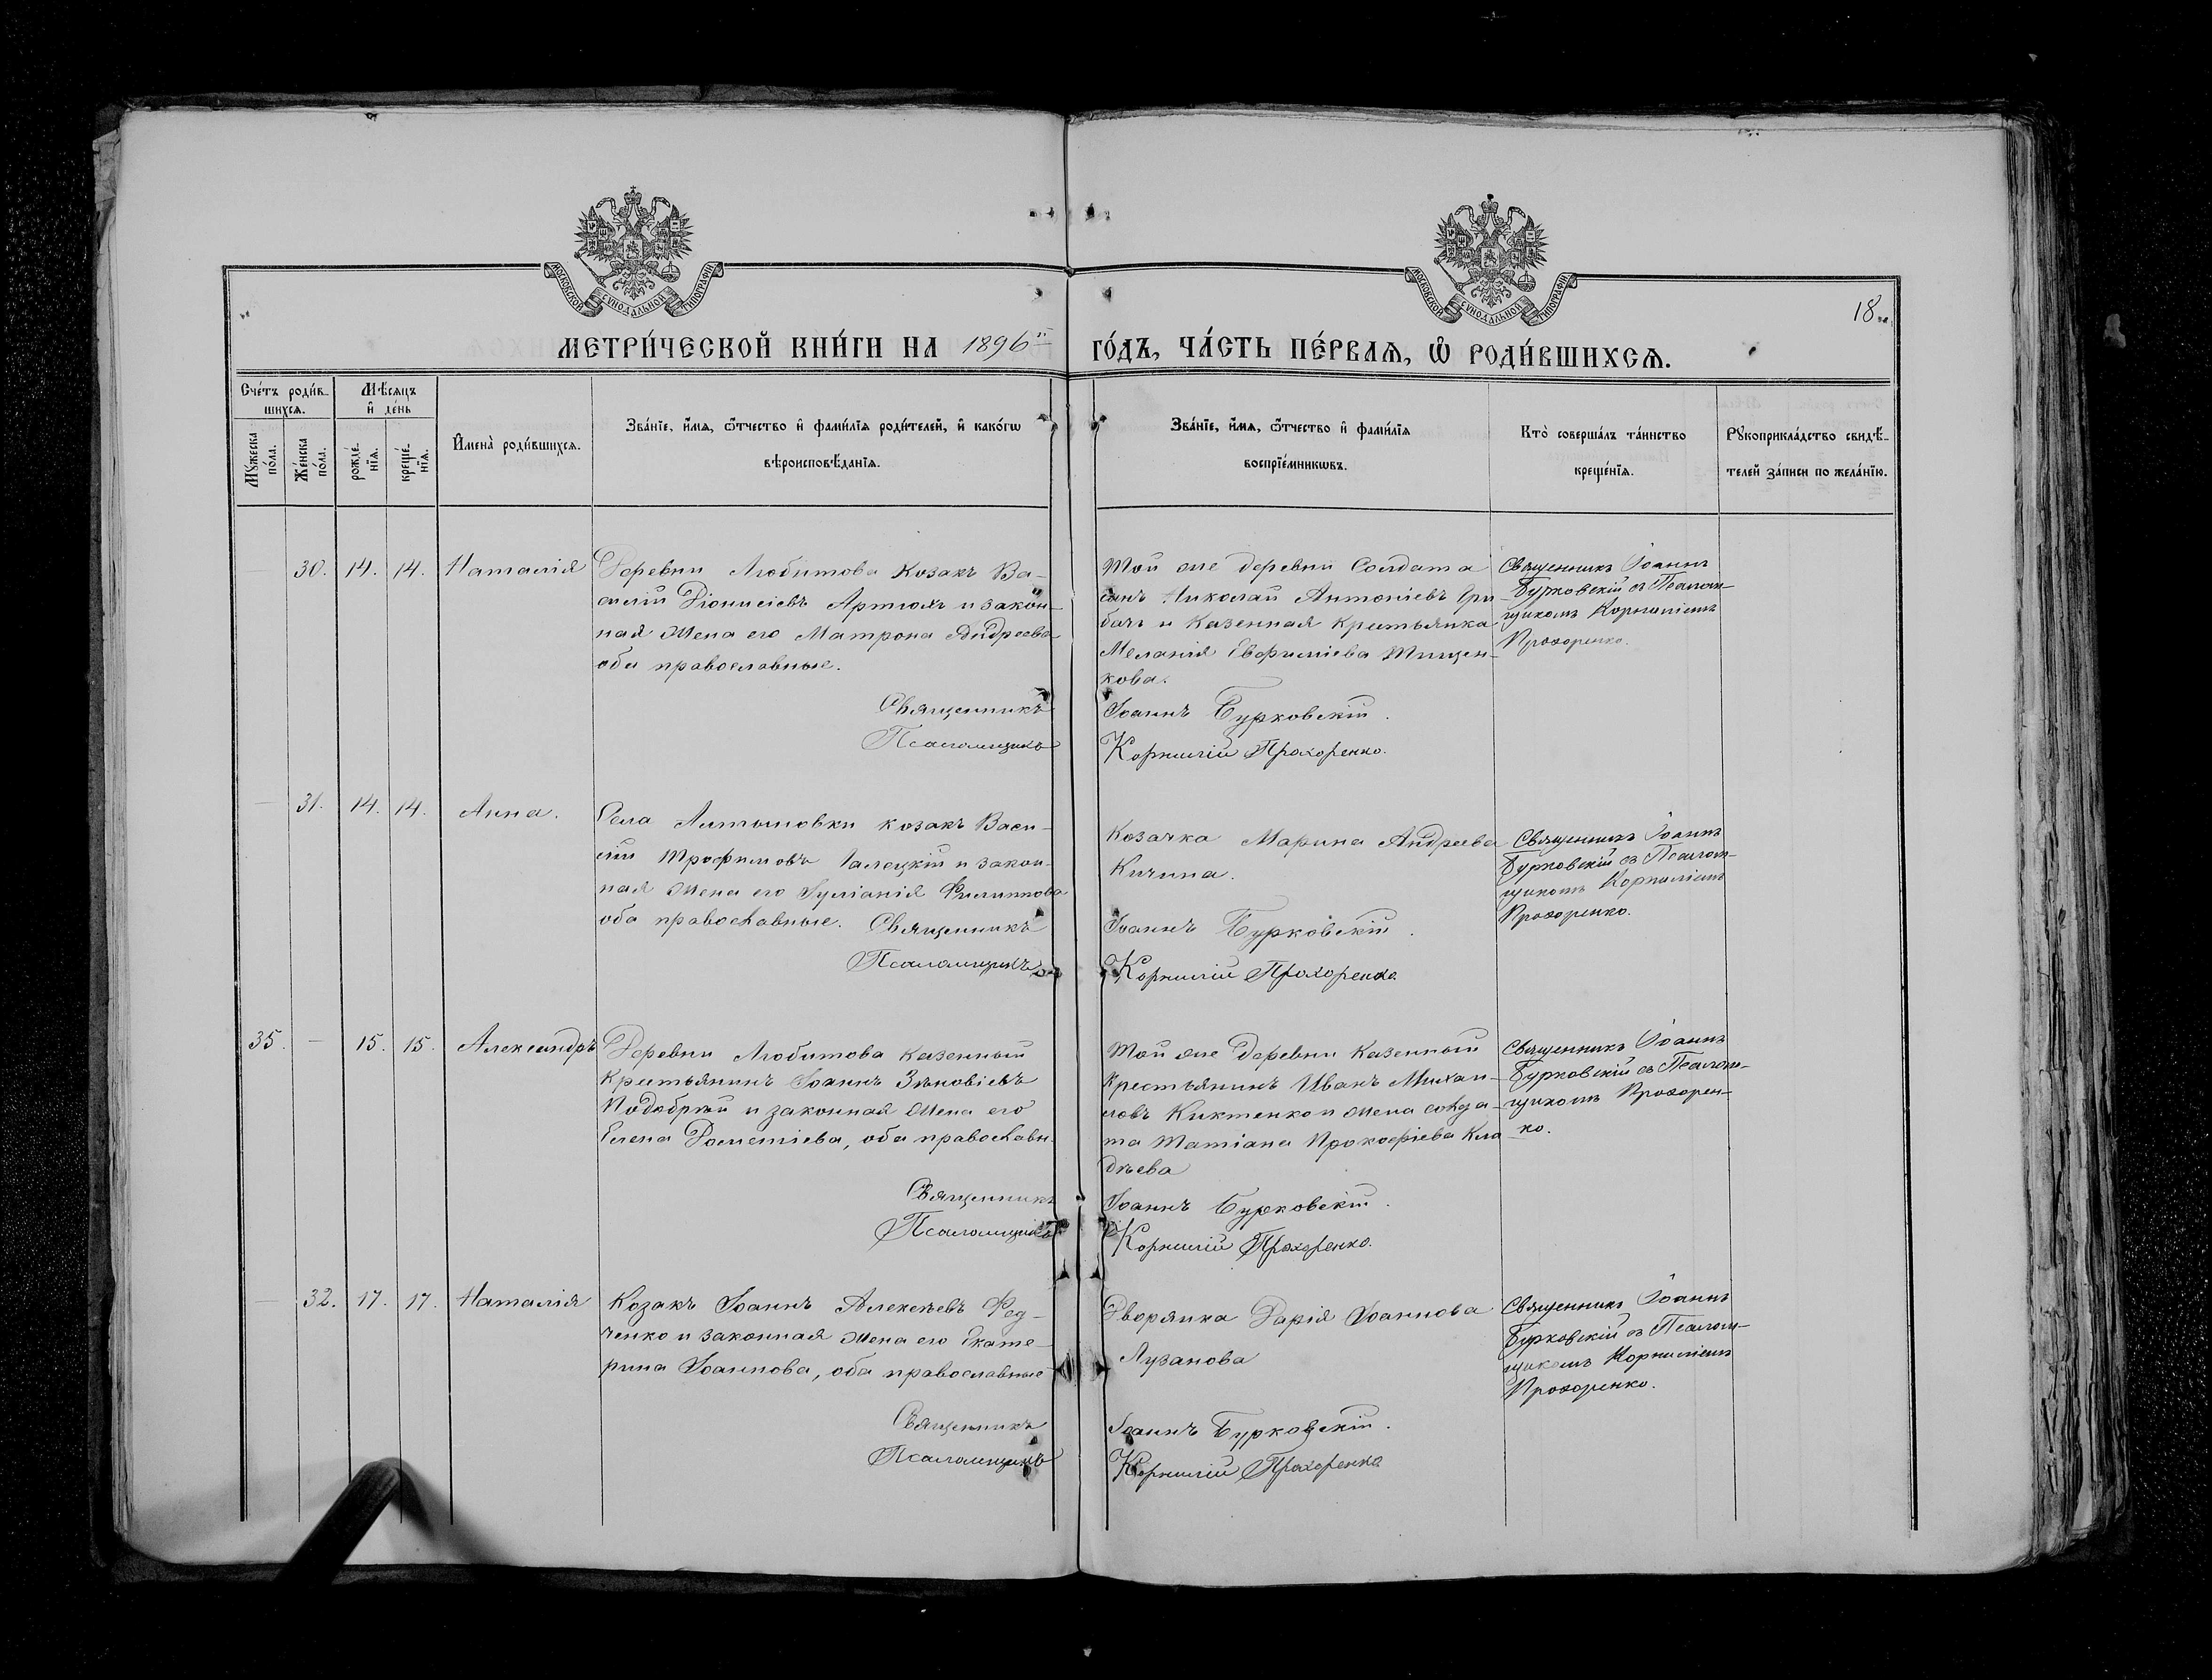 МОСКОВСКОЙ СУНОДАЛЬНОЙ ТИПОГРАФІИ
МОСКОВСКОЙ СУНОДАЛЬНОЙ ТИПОГРАФІИ
18
МЕТРИ́ЧЕСКОЙ КНИ́ГИ НА 1896й ГО́ДЪ, ЧА́СТЬ ПЕ́РВАѦ, Ѽ РОДИ́ВШИХСѦ.
Сче́тъ роди́в-
шихсѧ.
Мѣсѧцъ
и҆ де́нь
Мꙋжеска
по́ла.
Же́нска
по́ла.
рожде́-
нїѧ.
креще́-
нїѧ.
И҆мена̀ роди́вшихсѧ.
Зва́нїе, и҆́мѧ, ѻ҆́тчество и҆ фами́лїѧ роди́телей, и҆ како́гѡ
вѣроисповѣ́данїѧ.
Зва́нїе, и҆́мѧ, ѻ҆́тчество и҆ фами́лїѧ
воспрїе́мникѡвъ.
Кто̀ соверша́лъ та́инство
креще́нїѧ.
Рꙋкоприкла́дство свидѣ́-
телей за́писи по жела́нїю.
30. 14. 14. Наталія
Деревни Любитова козакъ Ва-
силій Діонисіевъ Артюхъ и закон-
ная жена его Матрона Андреева
оба православные.
Священникъ
Псаломщикъ
Той же деревни Солдата
сынъ Николай Антоніевъ Гри-
бачъ и казенная крестьянка
Меланія Евфиміева Тищен-
кова.
Іоаннъ Бурковскій.
Корнилій Прохоренко.
Священникъ Іоаннъ
Бурковскій съ Псалом-
щикомъ Корниліемъ
Прохоренко.
31. 14. 14. Анна.
Села Алтыновки козакъ Васи-
лій Трофимовъ Галецкій и закон-
ная жена его Іуліанія Филиппова
оба православные. Священникъ
Псаломщикъ
Козачка Марина Андреева
Кичина.
Іоаннъ Бурковскій.
Корнилій Прохоренко
Священникъ Іоаннъ
Бурковскій съ Псалом-
щикомъ Корниліемъ
Прохоренко.
35. - 15. 15. Александръ
Деревни Любитова казенный
крестьянинъ Іоаннъ Зѣновіевъ
Подобрій и законная жена его
Елена Дометіева, оба православн.
Священникъ
Псаломщикъ
Той же Деревни казенный
крестьянинъ Иванъ Михаи-
ловъ Киктенко и жена солда-
та Татіана Прокофіева Кла
дѣева
Іоаннъ Бурковскій.
Корнилій Прохоренко.
Священникъ Іоаннъ
Бурковскій съ Псалом-
щикомъ Прохорен-
ко.
32. 17. 17. Наталія
Козакъ Іоаннъ Алексѣевъ Фед-
ченко и законная жена его Екате-
рина Іоаннова, оба православные
Священникъ
Псаломщикъ
Дворянка Дарія Іоаннова
Лузанова
Іоаннъ Бурковскій.
Корнилій Прохоренко
Священникъ Іоаннъ
Бурковскій съ Псалом-
щикомъ Корниліемъ
Прохоренко.